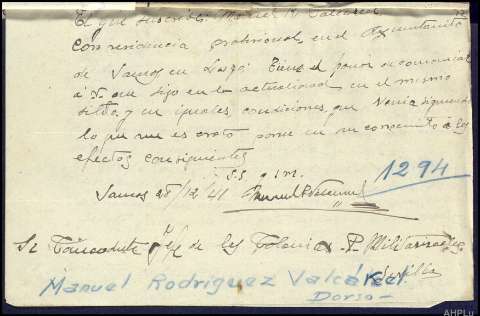 El que suscribe Manuel R. Valcárcel
con residencia provisional, en el Ayuntamiento
de Samos en Lugo: Tiene el honor de comunicar
a V. que sigo en la actualidad en el mismo
sitio y en iguales condiciones, que venia siguiendo
lo que pone en su conocimiento a los
efectos consiguientes
S.S. q
Samos 28/12/41
1294
Sr Comandante Jefe de las Colonias P. Militarizadas
Sevilla
Manuel Rodríguez Valcárcel.
Dorso-
AHPLu